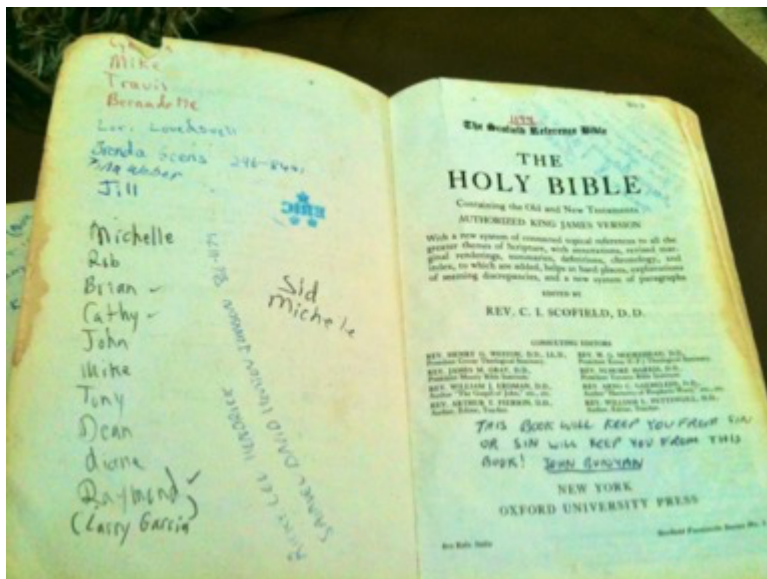 Mike
Travis
Bernadette
Lori
Brenda
246-8441
Jill
Michelle
Rob
Brian
Cathy
John
Mike
Tony
Dean
diane
Raymond
(Larry Garcia)
EPIC
Sid
Michele
RICKY LEE HENDRICK
SAMUEL DAVID JOHNSON
The Scofield Reference Bible
THE
HOLY BIBLE
Containing the Old and New Testaments
AUTHORIZED KING JAMES VERSION
With a new system of connected topical references to all the
greater themes of Scripture, with annotations, revised mar-
ginal renderings, summaries, definitions, chronology, and
index, to which are added, helps at hard places, explanations
of seeming discrepancies, and a new system of paragraphs
EDITED BY
REV. C. I. SCOFIELD, D.D.
CONSULTING EDITORS
REV. HENRY G. WESTON, D.D., LL.D.,
REV. JAMES M. GRAY, D.D.,
REV. WILLIAM J. ERDMAN, D.D.,
REV. ARTHUR T. PIERSON, D.D.,
Author, Editor, Teacher
REV. W. G. MOOREHEAD, D.D.,
REV. ELMORE HARRIS, D.D.,
REV. ARNO C. GAEBELEIN, D.D.,
REV. WILLIAM L. PETTINGILL, D.D.,
Author, Editor, Teacher
THIS BOOK WILL KEEP YOU FROM SIN
OR SIN WILL KEEP YOU FROM THIS
BOOK! JOHN BUNYAN
NEW YORK
OXFORD UNIVERSITY PRESS